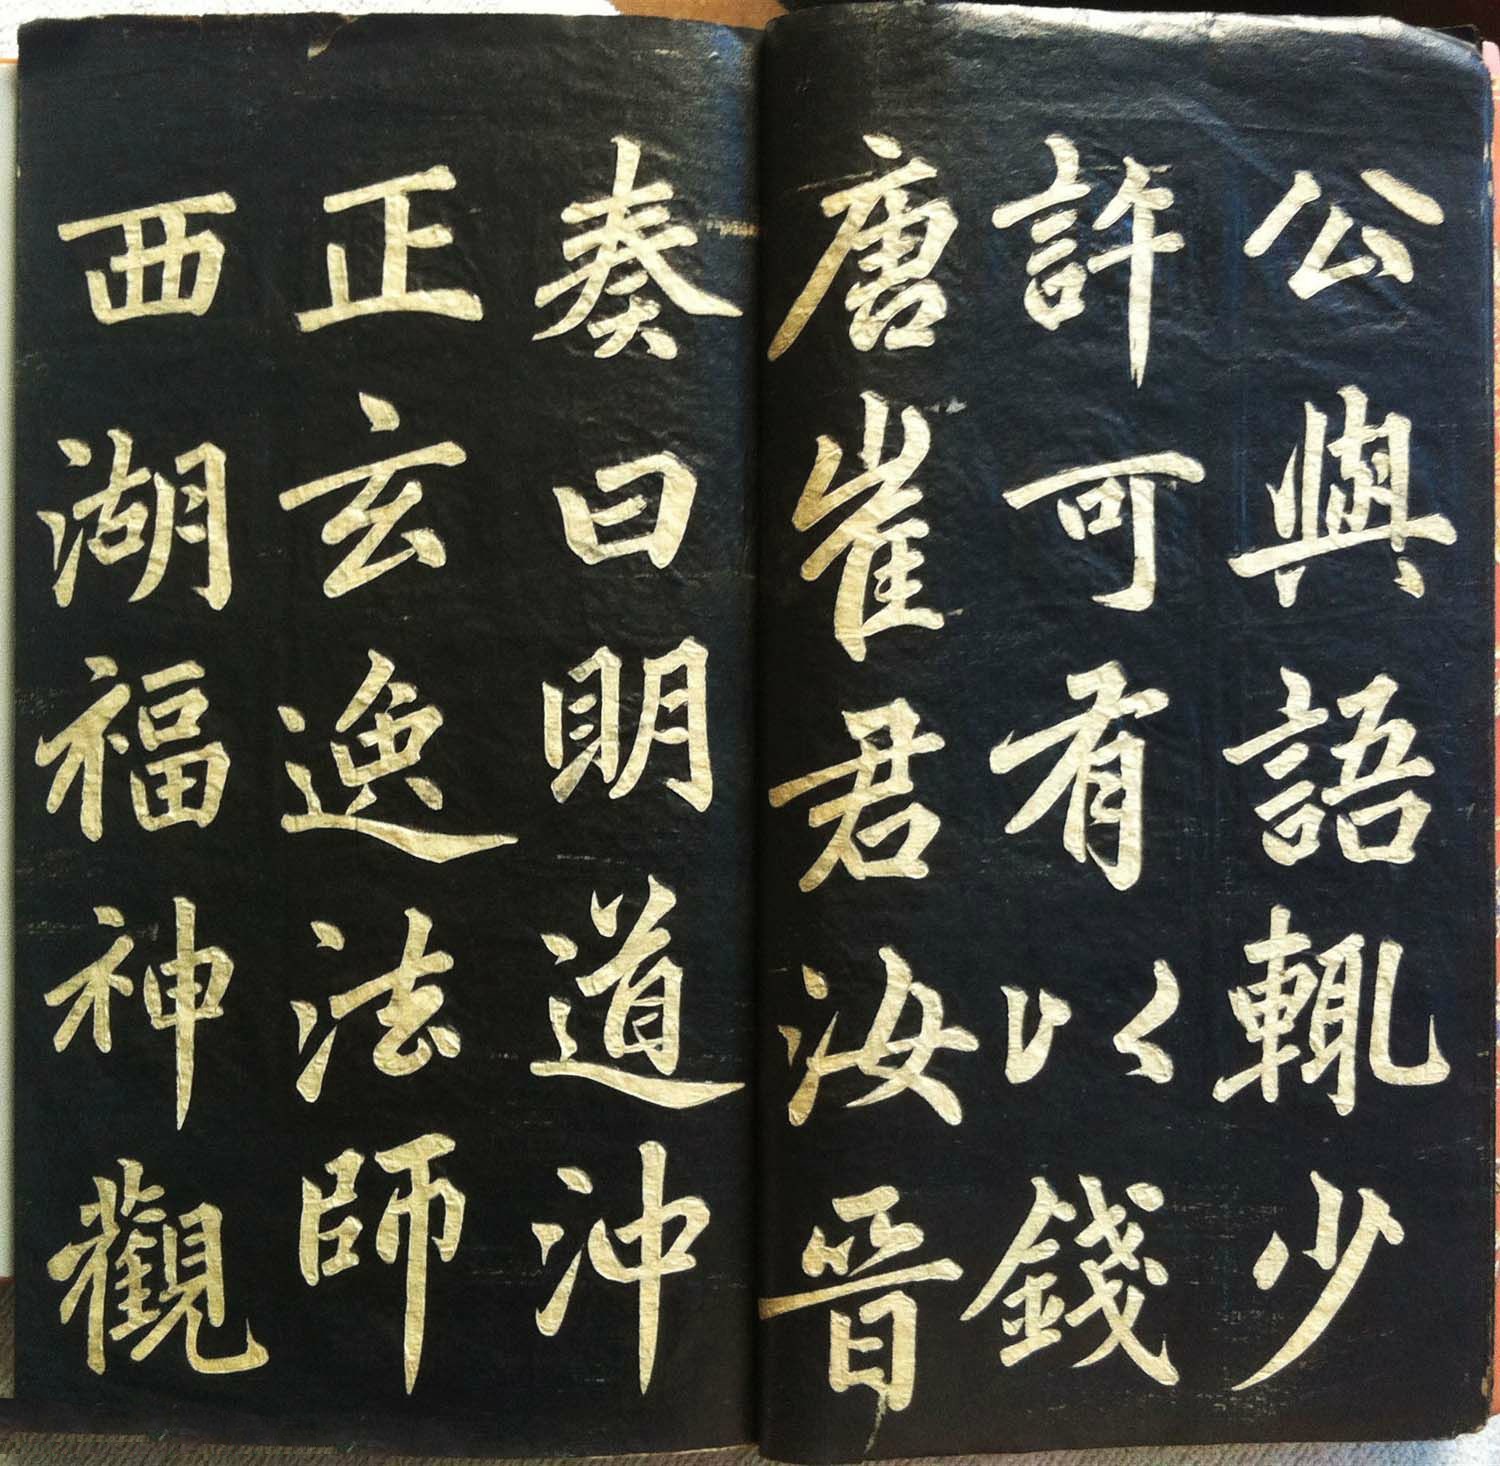 公與語輒少
許可有以錢
唐崔君汝晉
奏曰明道沖
正玄逸法師
西湖福神觀